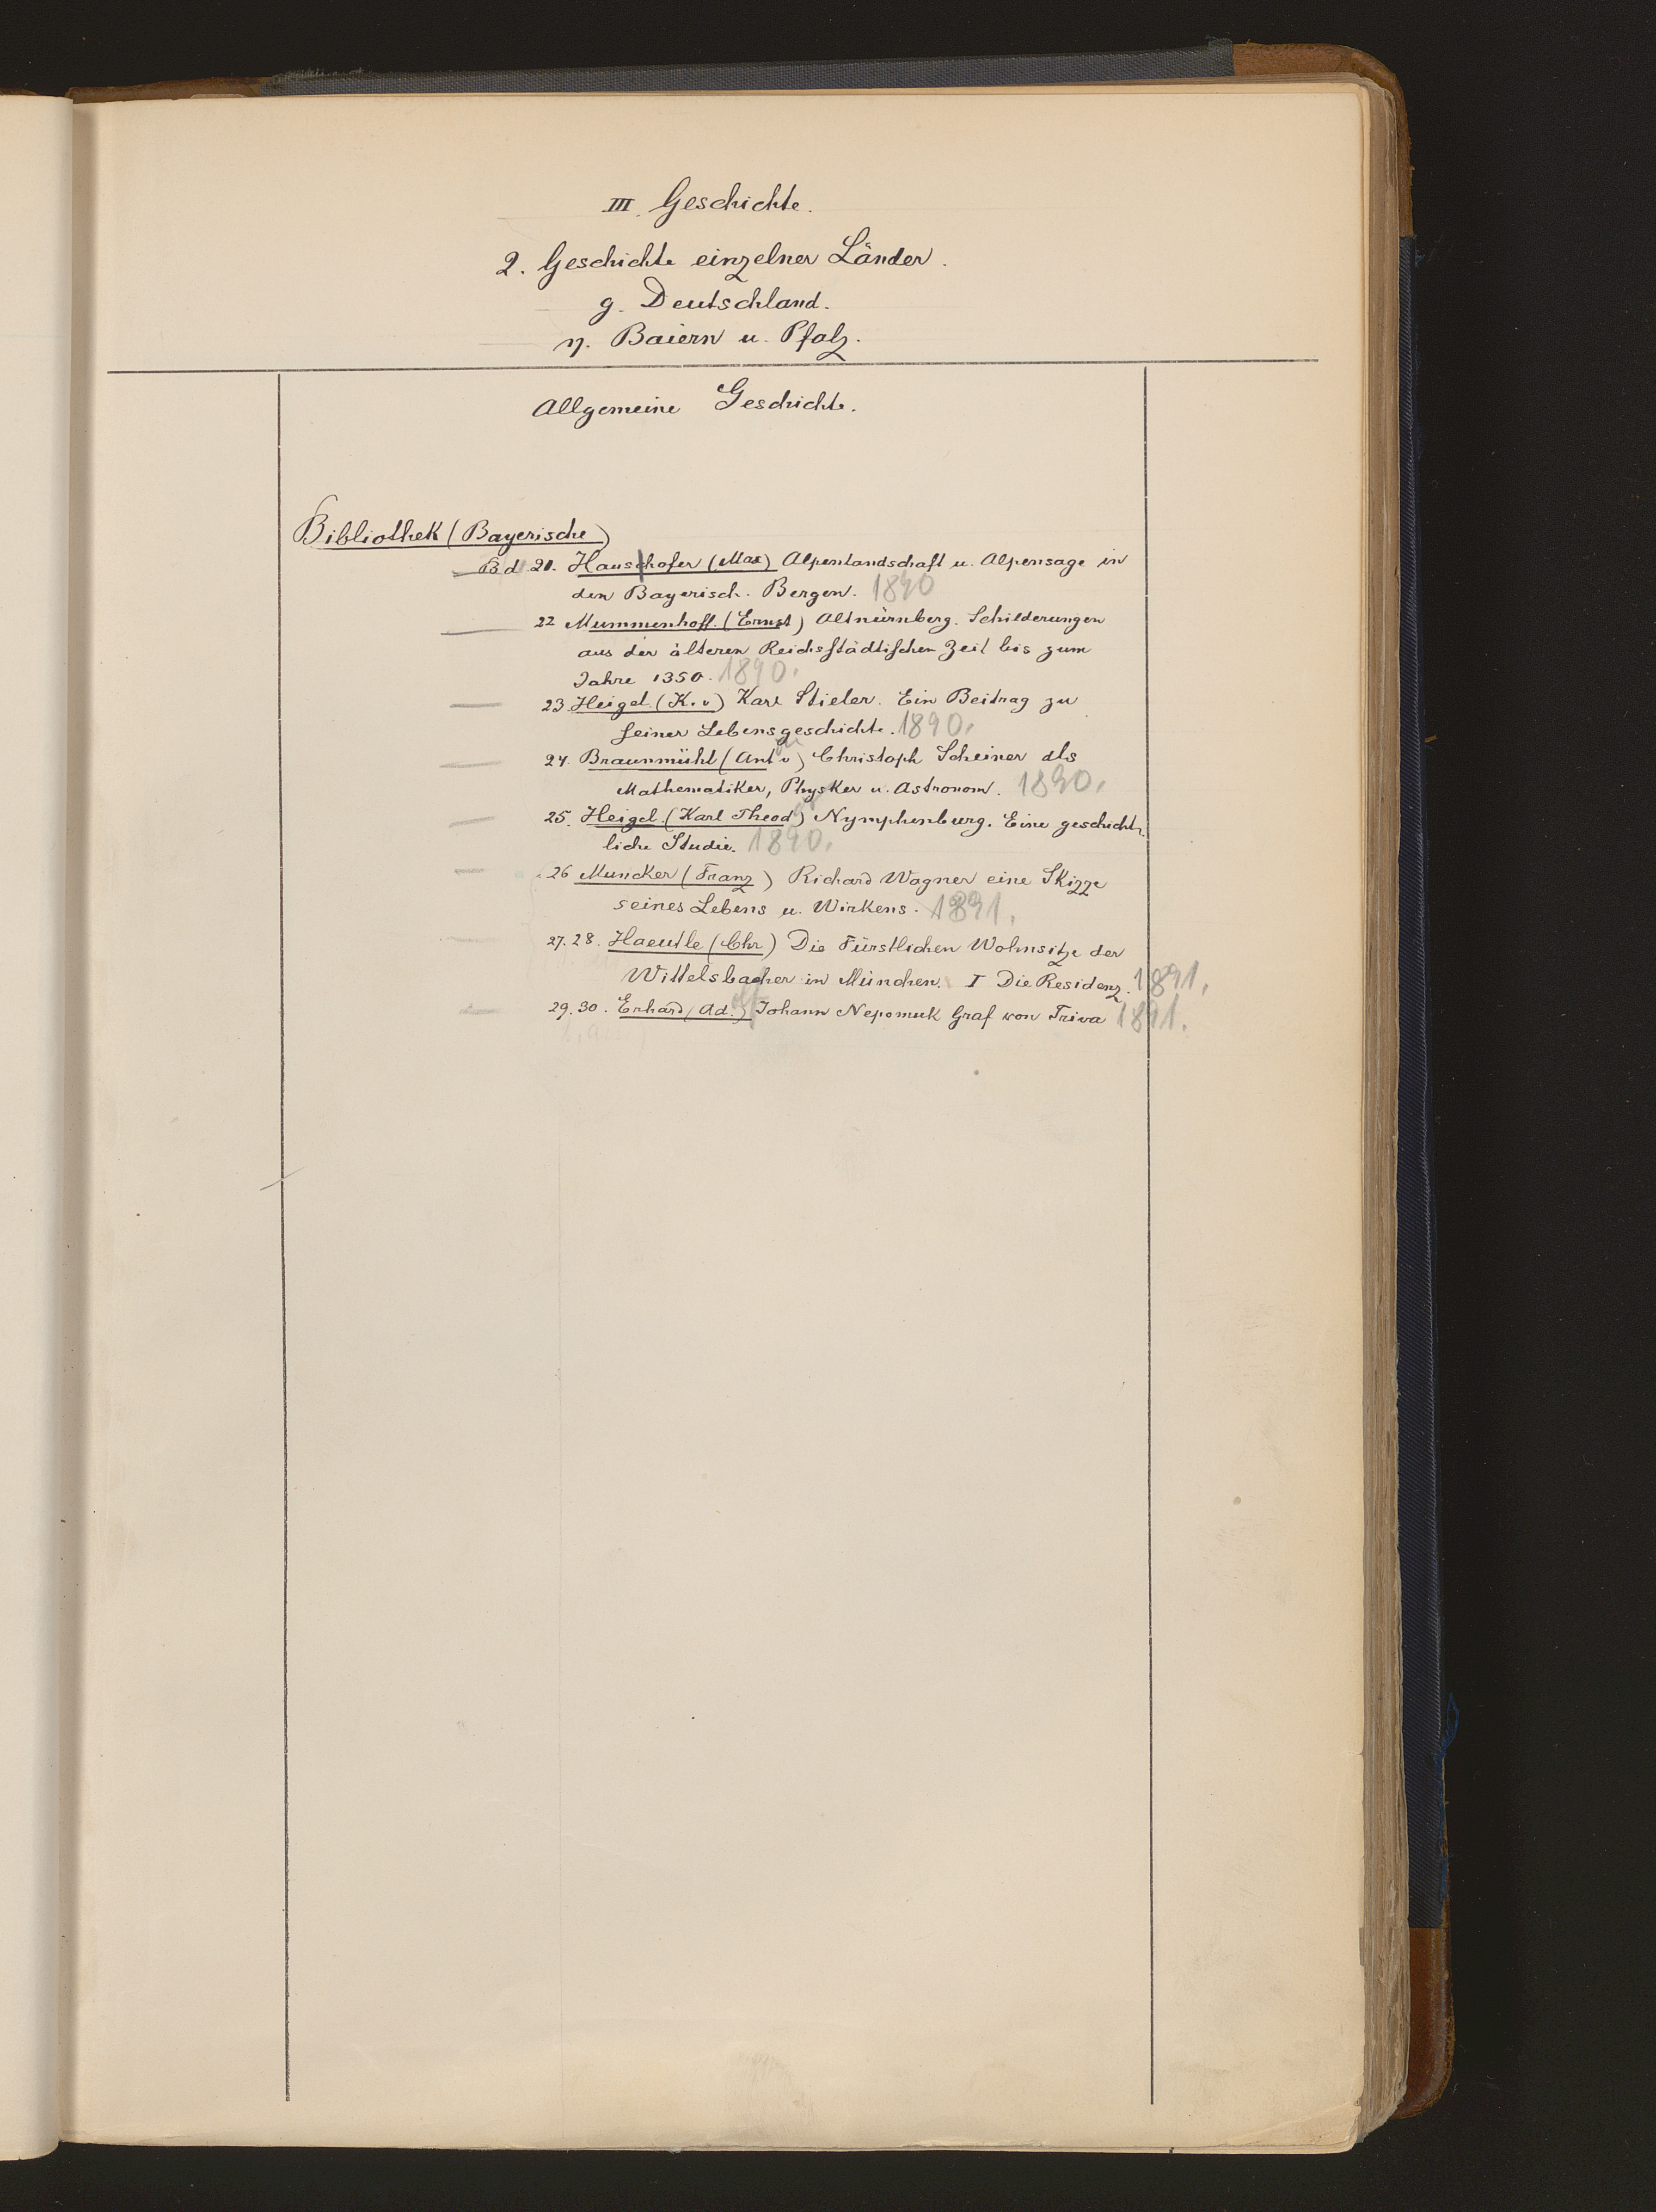 III. Geschichte.
2. Geschichte einzelner Länder.
g. Deutschland.
η. Baiern u. Pfalz.
Allgemeine Geschichte.
Bibliothek (Bayerische)
Bd 21. Haushofer (Max) Alpenlandschaft u. Alpensage in
den Bayerisch. Bergen. 1890
22 Mummenhoff. (Ernst) Altnürnberg. Schilderungen
aus der älteren Reichsstädtischen Zeit bis zum
Jahre 1350. 1890.
23 Heigel. (K. v) Karl Stieler. Ein Beitrag zu
seiner Lebensgeschichte. 1890.
24. Braunmühl (Ant v) Christoph Scheiner als
Mathematiker, Physker u. Astronom. 1890.
25. Heigel. (Karl Theod) Nymphenburg. Eine geschicht-
liche Studie. 1890.
26 Muncker (Franz) Richard Wagner eine Skizze
seines Lebens u. Wirkens. 1891.
27. 28. Haeutle (Chr) Die Fürstlichen Wohnsitze der
Wittelsbacher in München. I Die Residenz. 1891.
29. 30. Erhard (Ad.) Johann Nepomuk Graf von Triva 1891.